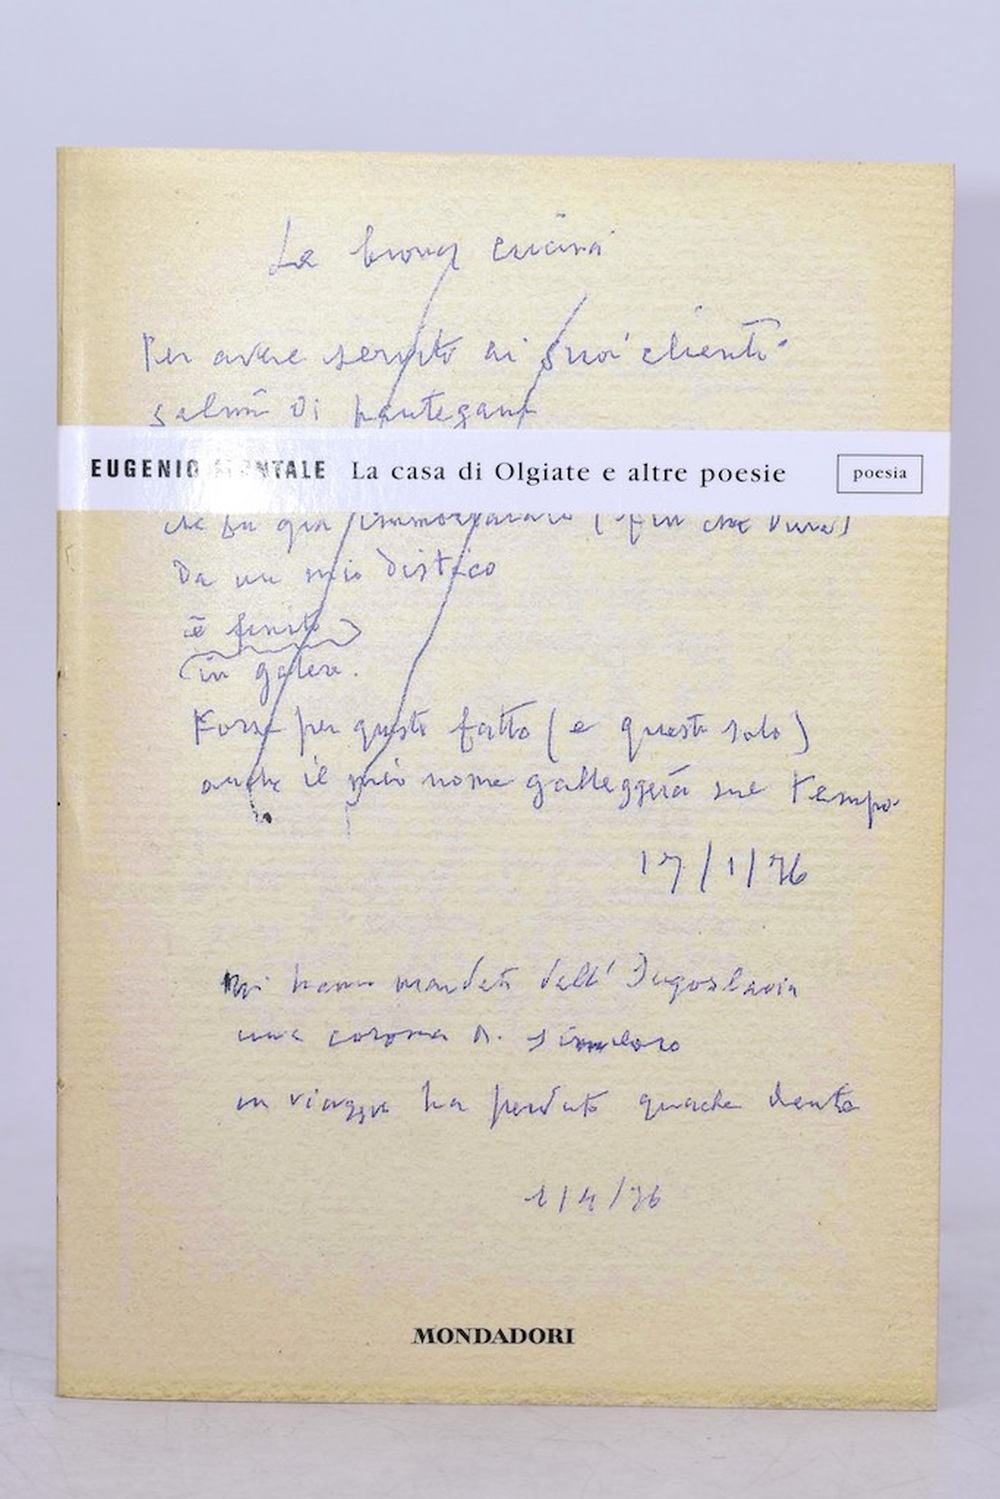 La buona cucina
Per avere servito ai suoi clienti
salmì di pantegana
EUGENIO MONTALE La casa di Olgiate e altre poesie poesia
che fu già immortalato (fin che dura)
Da un mio distico
è finito
in galera.
Forse per questo fatto (e questo solo)
anche il mio nome galleggerà sul tempo
17/1/76
Mi hanno mandato dall'Jugoslavia
una corona di
in viaggio ha perduto qualche dente
1/4/76
MONDADORI